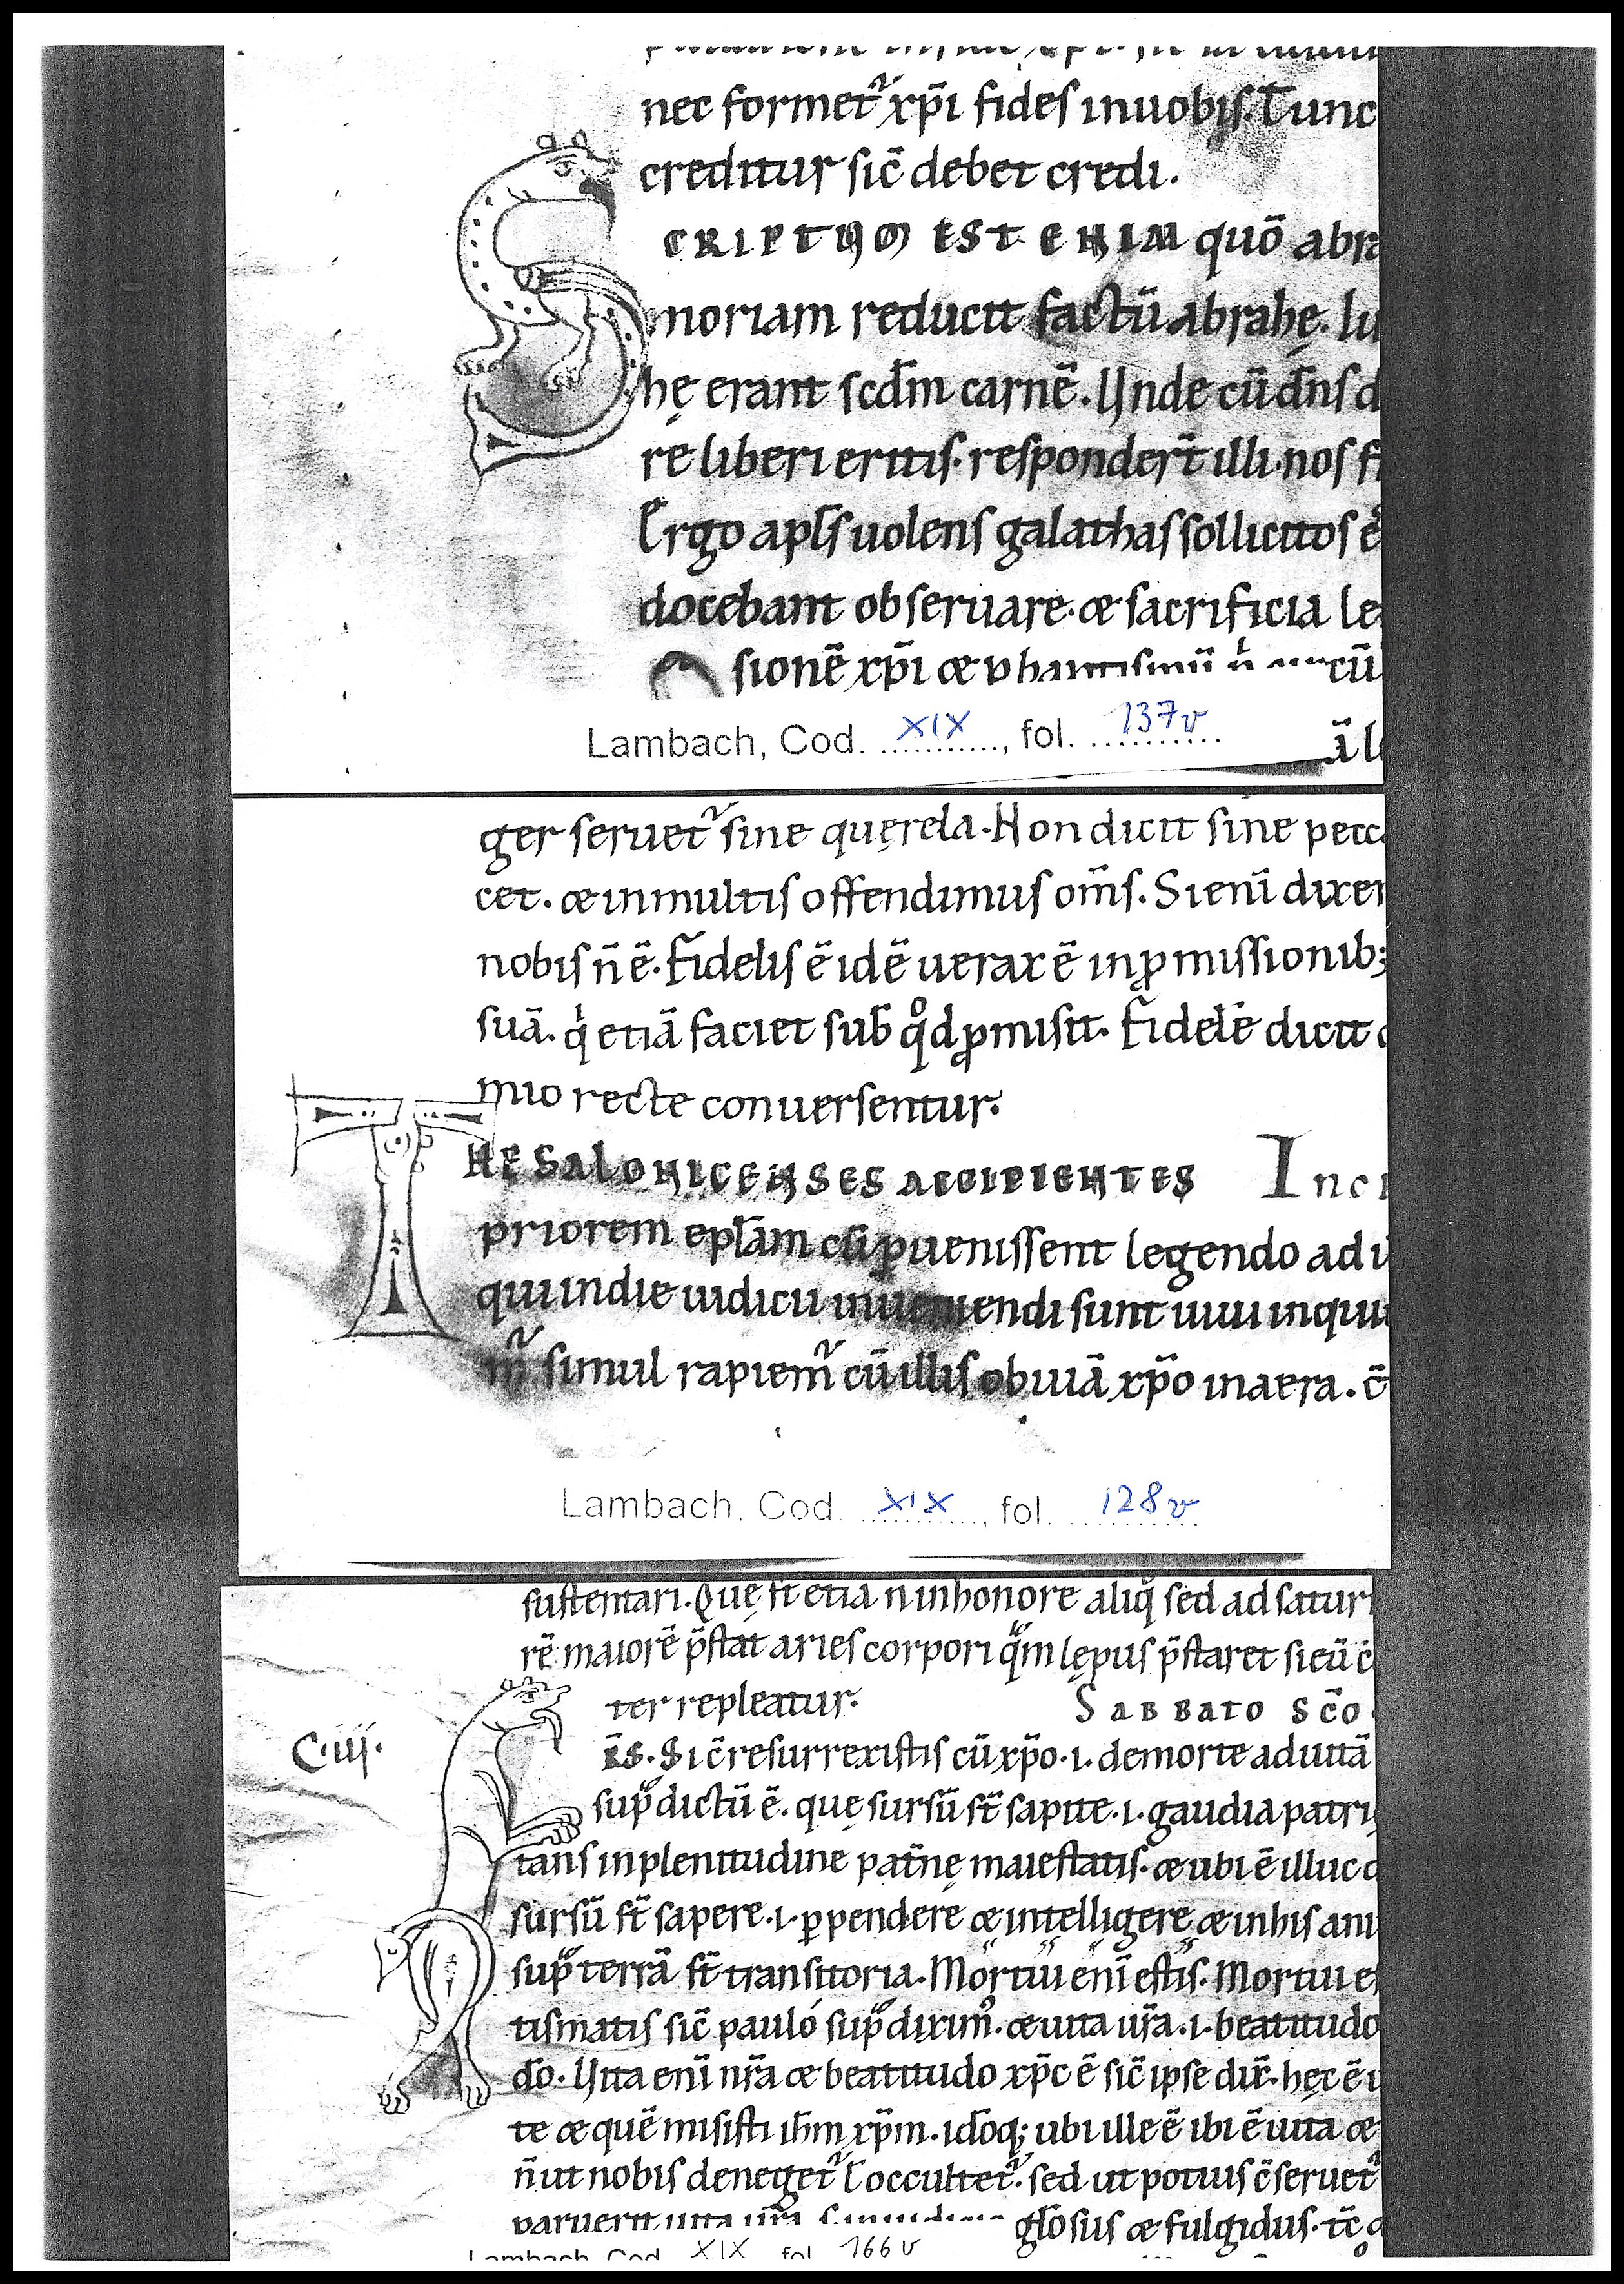 nec formet᷑ xp̄i fides inuobis. Tunc
creditur sic̄ debet credi.
SCRIPTUM EST ENIM quō abra
moriam reducit factū abrahę. Iu
hę erant scd̄m carnē. Unde cū dn̄s d
rē liberi eritis. respondert̄ illi. nos fi
Ergo apl̄s uolens galathas sollicitos e
docebant obseruare. & sacrificia le
sionē xp̄i & cū
ā
Lambach, Cod. XIX, fol. 137v
ger seruet᷑ sine quęrela. Non dicit sine pecca
cet. & in multis offendimus om̄s. Si enī dixer
nobis n̄ ē. Fidelis ē idē uerax ē in ꝓmissionib;
suā. qͥ etiā faciet sub̄ qͦd ꝓmisit. Fidelē dicit
mio recte conuersentur.
THESALONICENSES ACCIPIENTES Inci
priorem epl̄am cū ꝑuenissent legendo ad
qui in die iudicii inueniendi sunt uiui inqui
m᷑ simul rapiem᷑ cū illis obuiā xp̄o in aera. c̄
Lambach, Cod. XIX, fol. 128v
sustentari. Quę st̄ etiā n̄ in honore aliq̄ sed ad saturi
rē maiorē p̄stat aries corpori qͣm lepus p̄staret sic̄ ū
ter repleatur. SABBATO SC̄O
C.iij.
FRS̄. Si c̄resurrexistis cū xp̄o .i. de morte ad uitā
supͣ dictū ē. quę sursū st̄ sapite .i. gaudia patri
tans in plenitudine patn̄ę maiestatis. & ubi ē illuc
sursū st̄ sapere .i. ꝑpendere & intelligere & in his ani
supͣ terrā st̄ transitoria. Mortui enī estis. Mortui e
tismatis sic̄ paulo supͣ diximꝰ. & uita ur̄a .i. beatitudo
do. Uita enī nr̄a & beatitudo xp̄c ē sic̄ ipse dix̄. hęc ē
te & quē misisti ih̄m xp̄m. idōq; ubi ille ē ibi ē uita &
n̄ ut nobis deneget᷑ l̄ occultet᷑. sed ut potius c̄seruet᷑
paruerit uita ur̄a gl̄osus & fulgidus. tc̄
Lambach, Cod. XIX, fol. 166v